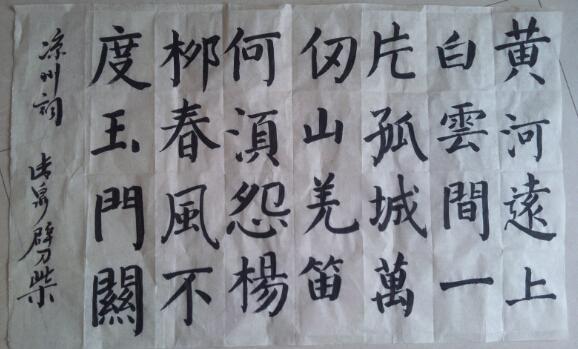 黄河遠上
白雲間一
片孤城萬
仞山羌笛
何湏怨楊
柳春風不
度玉門關
凉州詞 清泉劈柴